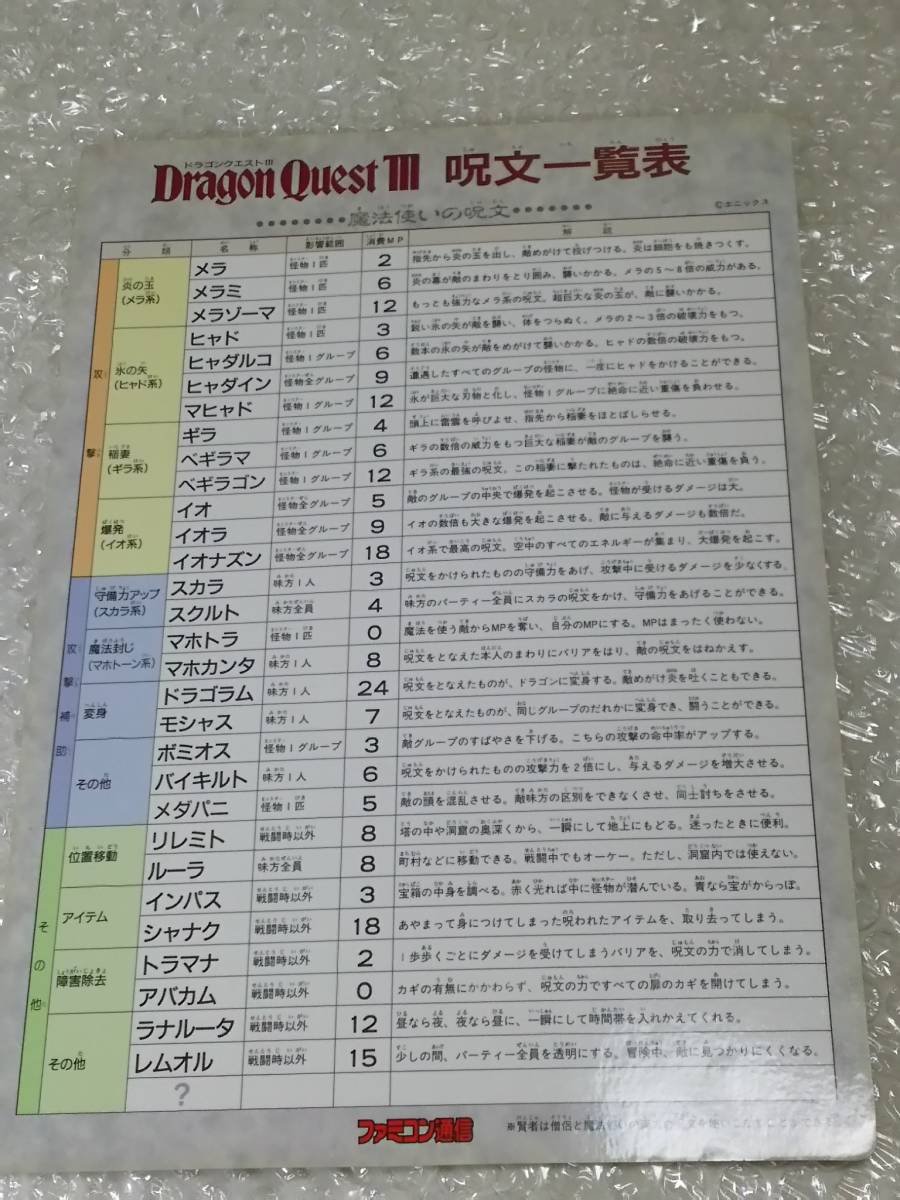 ドラゴンクエストIII
Dragon Quest III 呪文一覧表
魔法使いの呪文
©エニックス
分類 名称 影響範囲 消費MP 解説
攻撃
炎の玉
(メラ系)
メラ 怪物1匹 2 指先から炎の玉を出し、敵めがけて投げつける。炎は細胞をも焼きつくす。
メラミ 怪物1匹 6 炎の幕が敵のまわりをとり囲み、襲いかかる。メラの5〜8倍の威力がある。
メラゾーマ 怪物1匹 12 もっとも強力なメラ系の呪文。超巨大な炎の玉が、敵に襲いかかる。
氷の矢
(ヒャド系)
ヒャド 怪物1匹 3 鋭い氷の矢が敵を襲い、体をつらぬく。メラの2〜3倍の破壊力をもつ。
ヒャダルコ 怪物1グループ 6 数本の氷の矢が敵をめがけて襲いかかる。ヒャドの数倍の破壊力をもつ。
ヒャダイン 怪物全グループ 9 遭遇したすべてのグループの怪物に、一度にヒャドをかけることができる。
マヒャド 怪物1グループ 12 氷が巨大な刃物と化し、怪物1グループに絶命に近い重傷を負わせる。
稲妻
(ギラ系)
ギラ 怪物1グループ 4 頭上に雷雲を呼びよせ、指先から稲妻をほとばしらせる。
ベギラマ 怪物1グループ 6 ギラの数倍の威力をもつ巨大な稲妻が敵のグループを襲う。
ベギラゴン 怪物1グループ 12 ギラ系の最強の呪文。この稲妻に撃たれたものは、絶命に近い重傷を負う。
爆発
(イオ系)
イオ 怪物全グループ 5 敵のグループの中央で爆発を起こさせる。怪物が受けるダメージは大。
イオラ 怪物全グループ 9 イオの数倍も大きな爆発を起こさせる。敵に与えるダメージも数倍だ。
イオナズン 怪物全グループ 18 イオ系で最高の呪文。空中のすべてのエネルギーが集まり、大爆発を起こす。
攻撃補助
守備力アップ
(スカラ系)
スカラ 味方1人 3 呪文をかけられたものの守備力をあげ、攻撃中に受けるダメージを少なくする。
スクルト 味方全員 4 味方のパーティー全員にスカラの呪文をかけ、守備力をあげることができる。
魔法封じ
(マホトーン系)
マホトラ 怪物1匹 0 魔法を使う敵からMPを奪い、自分のMPにする。MPはまったく使わない。
マホカンタ 味方1人 8 呪文をとなえた本人のまわりにバリアをはり、敵の呪文をはねかえす。
変身
ドラゴラム 味方1人 24 呪文をとなえたものが、ドラゴンに変身する。敵めがけ炎を吐くこともできる。
モシャス 味方1人 7 呪文をとなえたものが、同じグループのだれかに変身でき、闘うことができる。
その他
ボミオス 怪物1グループ 3 敵グループのすばやさを下げる。こちらの攻撃の命中率がアップする。
バイキルト 味方1人 6 呪文をかけられたものの攻撃力を2倍にし、与えるダメージを増大させる。
メダパニ 怪物1匹 5 敵の頭を混乱させる。敵味方の区別をできなくさせ、同士討ちをさせる。
その他
位置移動
リレミト 戦闘時以外 8 塔の中や洞窟の奥深くから、一瞬にして地上にもどる。迷ったときに便利。
ルーラ 味方全員 8 町村などに移動できる。戦闘中でもオーケー。ただし、洞窟内では使えない。
アイテム
インパス 戦闘時以外 3 宝箱の中身を調べる。赤く光れば中に怪物が潜んでいる。青なら宝がからっぽ。
シャナク 戦闘時以外 18 あやまって身につけてしまった呪われたアイテムを、取り去ってしまう。
障害除去
トラマナ 戦闘時以外 2 1歩歩くごとにダメージを受けてしまうバリアを、呪文の力で消してしまう。
アバカム 戦闘時以外 0 カギの有無にかかわらず、呪文の力ですべての扉のカギを開けてしまう。
その他
ラナルータ 戦闘時以外 12 昼なら夜、夜なら昼に、一瞬にして時間帯を入れかえてくれる。
レムオル 戦闘時以外 15 少しの間、パーティー全員を透明にする。冒険中、敵に見つかりにくくなる。
?
ファミコン通信
※賢者は僧侶と魔法使いの